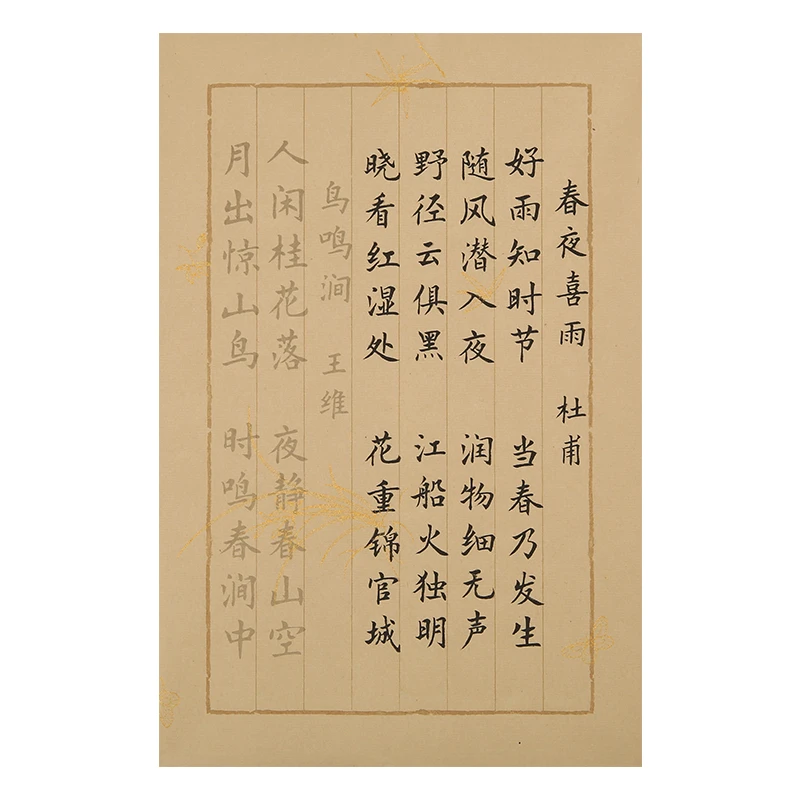 春夜喜雨 杜甫
好雨知时节 当春乃发生
随风潜入夜 润物细无声
野径云俱黑 江船火独明
晓看红湿处 花重锦官城
鸟鸣涧 王维
人闲桂花落 夜静春山空
月出惊山鸟 时鸣春涧中